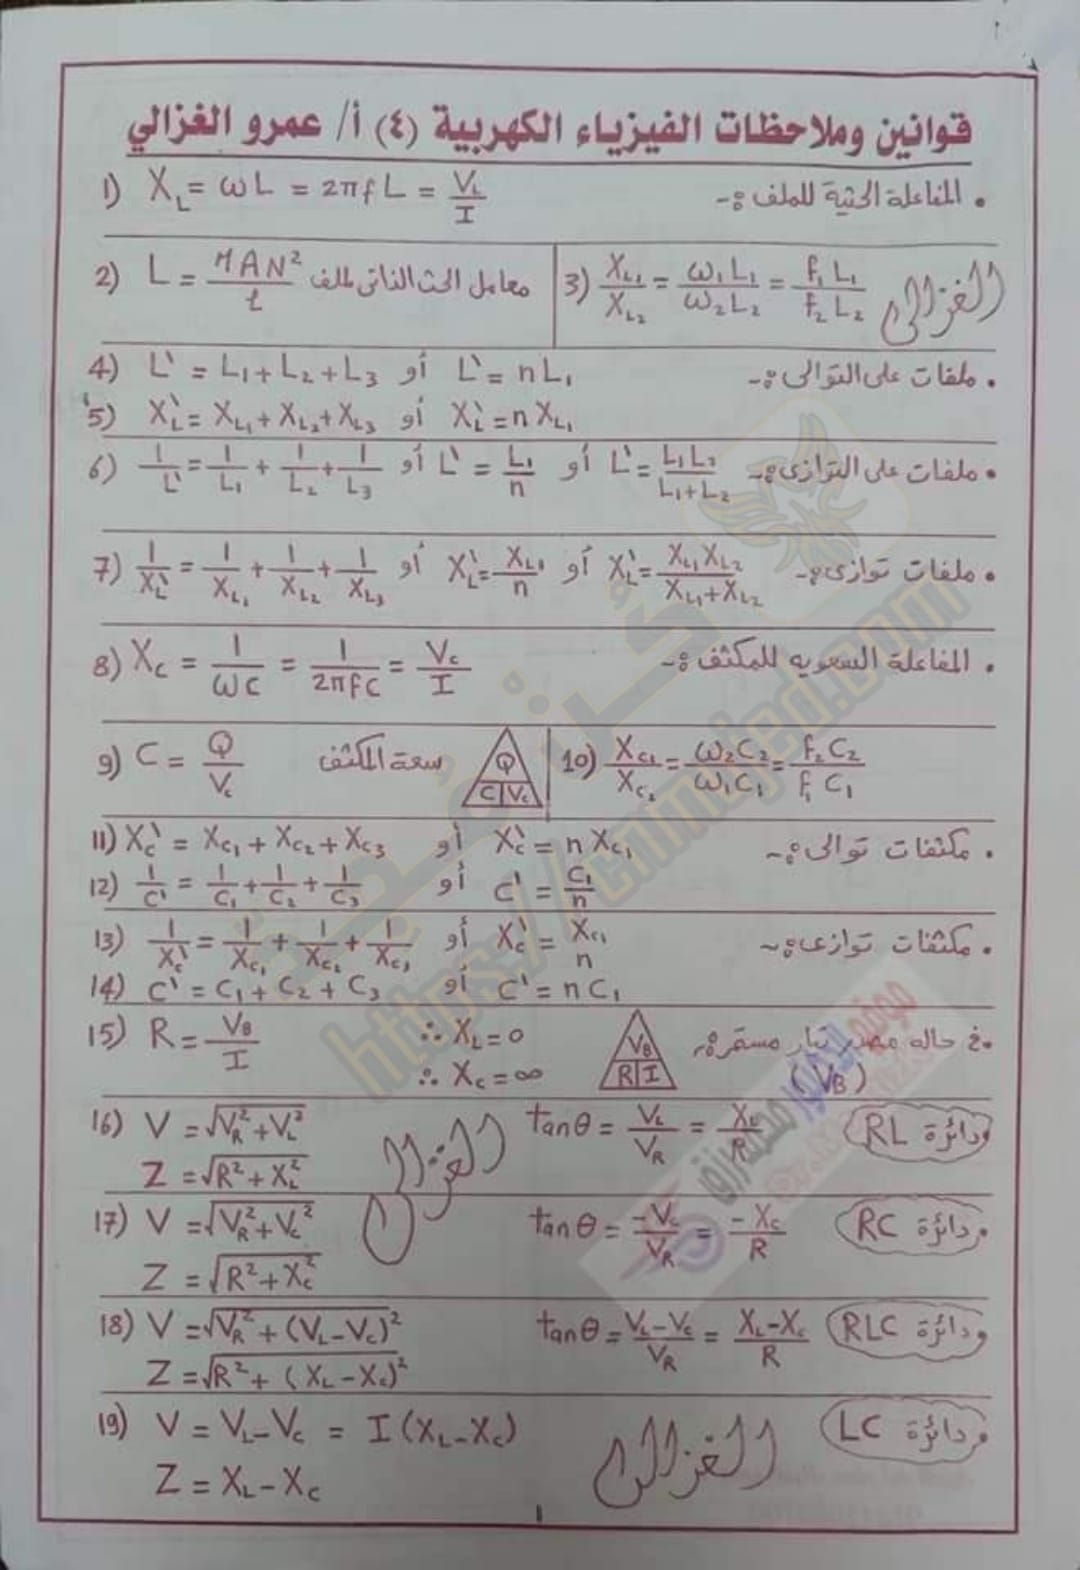 قوانين وملاحظات الفيزياء الكهربية (٤) أ/ عمرو الغزالي
• المفاعلة الحثية للملف :-
1) X_L = ωL = 2πfL = V_L/I
2) L = μAN²/ℓ معامل الحث الذاتى للملف
3) X_L1/X_L2 = ω₁L₁/ω₂L₂ = f₁L₁/f₂L₂
الغزالى
• ملفات على التوالى :-
4) L' = L₁ + L₂ + L₃ أو L' = nL₁
5) X'_L = X_L1 + X_L2 + X_L3 أو X'_L = nX_L1
• ملفات على التوازى :-
6) 1/L' = 1/L₁ + 1/L₂ + 1/L₃ أو L' = L₁/n أو L' = L₁L₂/L₁+L₂
• ملفات توازى :-
7) 1/X'_L = 1/X_L1 + 1/X_L2 + 1/X_L3 أو X'_L = X_L1/n أو X'_L = X_L1X_L2/X_L1+X_L2
• المفاعلة السعويه للمكثف :-
8) X_C = 1/ωC = 1/2πfC = V_C/I
9) C = Q/V_C سعة المكثف
Q
C V_C
10) X_C1/X_C2 = ω₂C₂/ω₁C₁ = f₂C₂/f₁C₁
• مكثفات توالى :-
11) X'_C = X_C1 + X_C2 + X_C3 أو X'_C = nX_C1
12) 1/C' = 1/C₁ + 1/C₂ + 1/C₃ أو C' = C₁/n
• مكثفات توازى :-
13) 1/X'_C = 1/X_C1 + 1/X_C2 + 1/X_C3 أو X'_C = X_C1/n
14) C' = C₁ + C₂ + C₃ أو C' = nC₁
• فى حاله مصدر تيار مستمر :-
(V_B)
15) R = V_B/I ∴ X_L = 0
∴ X_C = ∞
V_B
R I
• دائرة RL
16) V = √(V_R² + V_L²) tanθ = V_L/V_R = X_L/R
Z = √(R² + X_L²)
الغزالى
• دائرة RC
17) V = √(V_R² + V_C²) tanθ = -V_C/V_R = -X_C/R
Z = √(R² + X_C²)
• دائرة RLC
18) V = √(V_R² + (V_L-V_C)²) tanθ = V_L-V_C/V_R = X_L-X_C/R
Z = √(R² + (X_L-X_C)²)
• دائرة LC
19) V = V_L-V_C = I(X_L-X_C)
Z = X_L-X_C
الغزالى
1